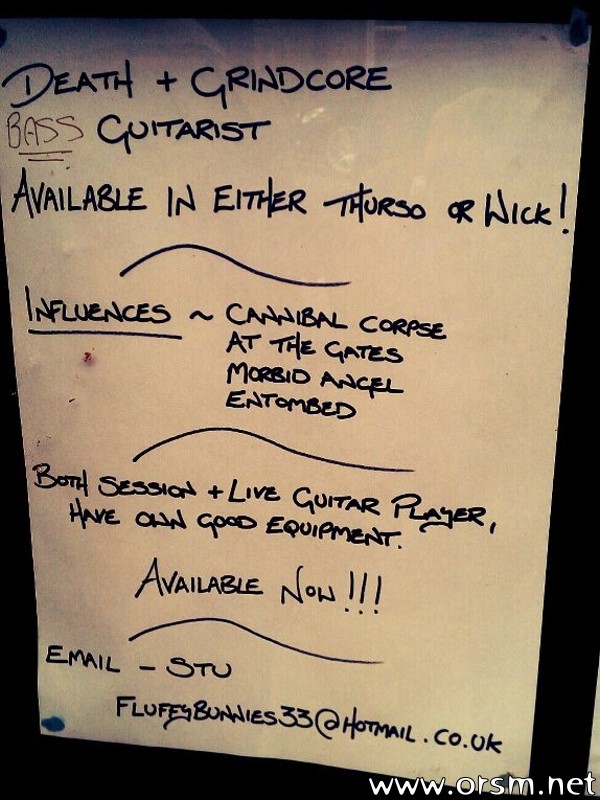 DEATH + GRINDCORE
BASS GUITARIST
AVAILABLE IN EITHER THURSO OR WICK!
INFLUENCES ~ CANNIBAL CORPSE
AT THE GATES
MORBID ANGEL
ENTOMBED
BOTH SESSION + LIVE GUITAR PLAYER,
HAVE OWN GOOD EQUIPMENT.
AVAILABLE NOW!!!
EMAIL - STU
FLUFFYBUNNIES33@HOTMAIL.CO.UK
www.orsm.net